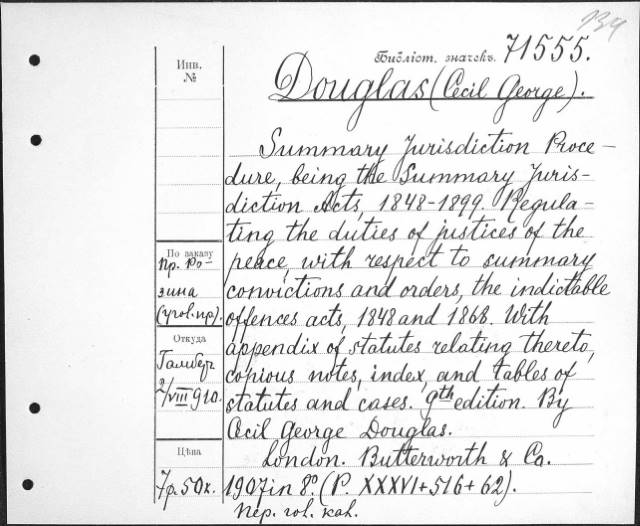 134
Библіот. значекъ. 71555.
Инв.
№
Douglas (Cecil George).
Summary Jurisdiction Proce-
dure, being the Summary Juris-
diction Acts, 1848-1899. Regula-
ting the duties of justices of the
peace, with respect to summary
convictions and orders, the indictable
offences acts, 1848 and 1868. With
appendix of statutes relating thereto,
copious notes, index, and tables of
statutes and cases. 9th edition. By
Cecil George Douglas.
London. Butterworth & Co.
1907 in 8º. (P. XXXVI+516+62).
По заказу
пр. Ро-
зина
(угол. пр).
Откуда
Гамбергъ
2/VIII 910.
Цѣна
7р. 50к.